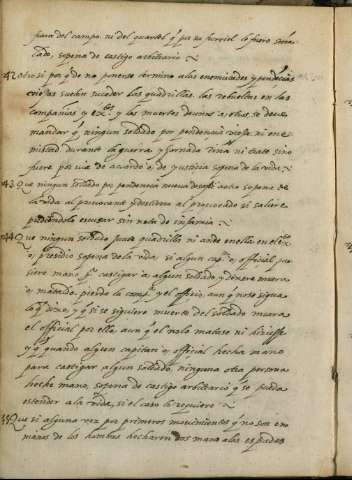 fuera del campo ni del quartel q̃ por su furriel le fuere seña
lado, sopena de castigo arbitrario ~
42. Otro si por q̃ de no ponerse termino a las enemistades y pendẽcias
viejas suelen suceder las quadrillas, las rebueltas en las
compañias y exto. y las muertes de unos a otros, se deue
mandar q̃ ningun soldado por pendencia vieja ni ene
mistad durante la guerra y jornada riña ni trate sino
fuere por via de acuerdo o de justicia sopena de la vida ~
43. Que ningun soldado por pendencia nueua desafie a otro so pena de
la vida al prouocante y desterro al prouocado si saliere
pudiendole escusar sin nota de infamia. ~
44. Que ningun soldado junte quadrilla ni ande en ella en el exto.
o presidio sopena de la vida, si algun cap.n o official pu
siere mano pa. castigar a algun soldado, y muera
o matado, pierda la comp.a y el officio, aun q̃ no se sigua
lo q̃ dixo, y q̃ si se siguiere muerte del soldado muera
el official por ella, aun q̃ el no lo matase ni hiriesse
y q̃ quando algun capitan o official hecha mano
para castigar algun soldado, ninguna otra persona
heche mano, sopena de castigo arbitrario q̃ se pueda
estender a la vida, si el caso lo requiere ~
45. Que si alguna vez por primeros mouimientos q̃ no son en
manos de los hombres hecharen dos mano a las espadas